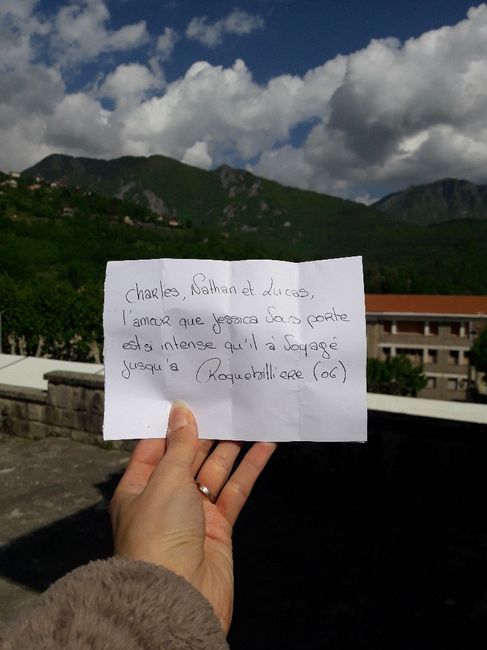 Charles, Nathan et Lucas,
l'amour que Jessica vous porte
est si intense qu'il à voyagé
jusqu'à Roquebilliere (06)